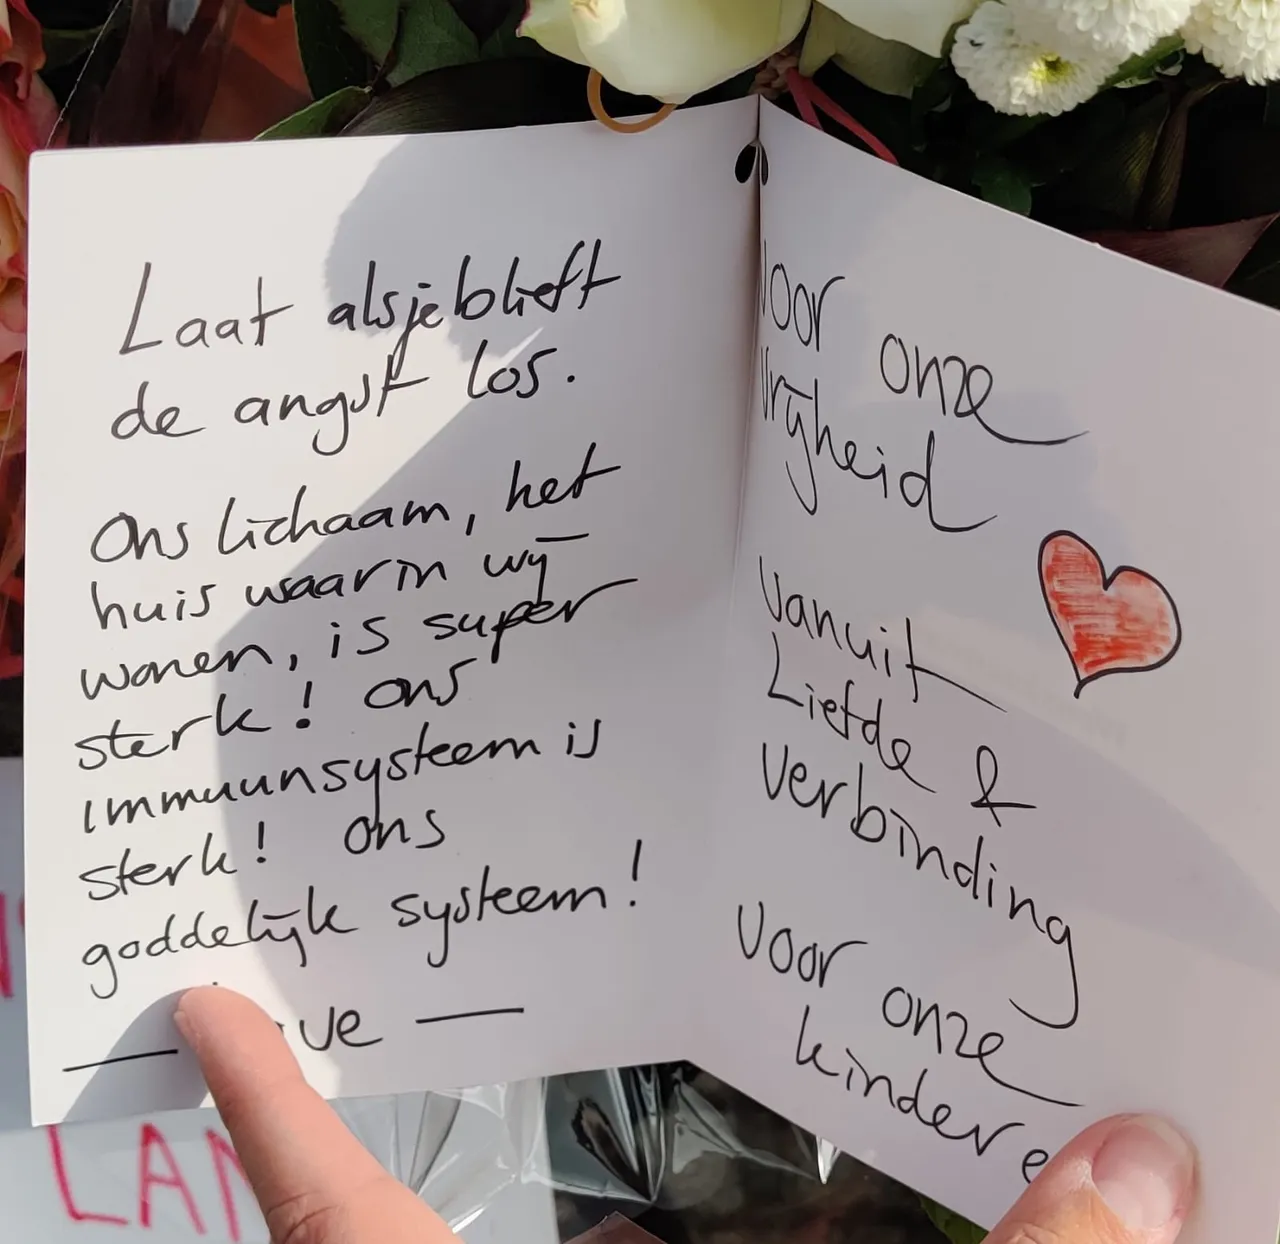 Laat alsjeblieft
de angst los.
Ons lichaam, het
huis waarin wij
wonen, is super
sterk! Ons
immuunsysteem is
sterk! Ons
goddelijk systeem!
Voor onze
vrijheid
vanuit
Liefde &
Verbinding
Voor onze
kindere
LAN